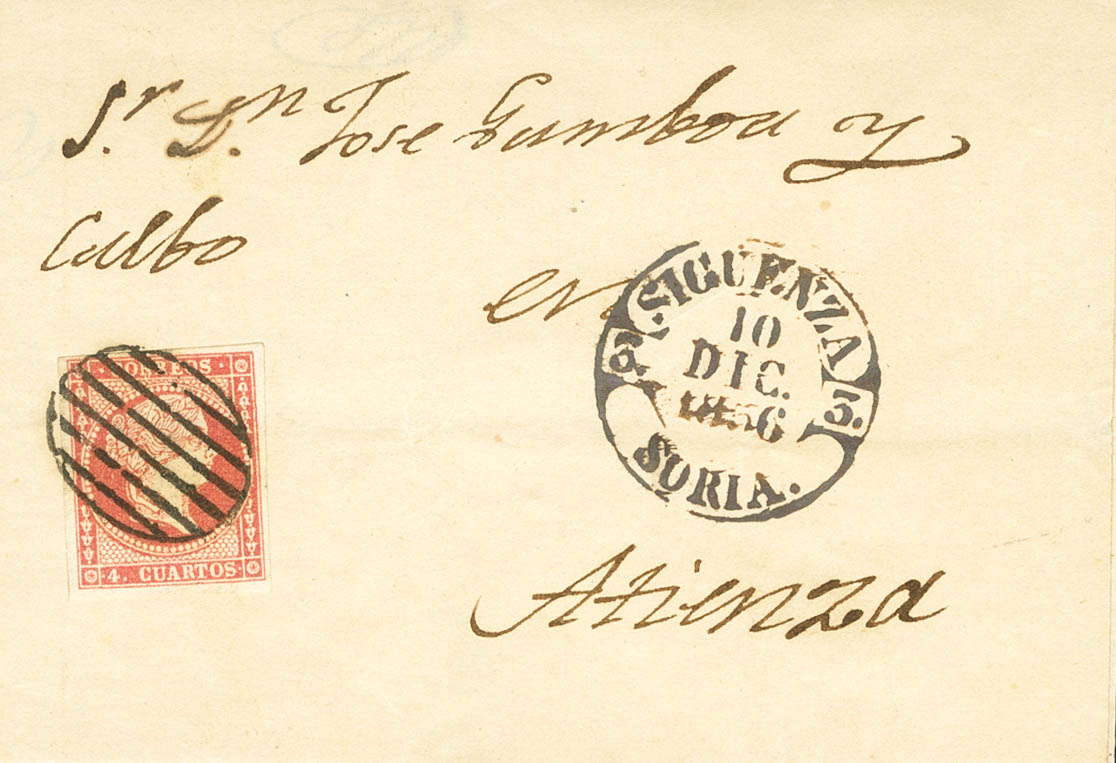 Sr. Dn. Jose Gamboa y
Calbo
en
SIGUENZA
10
DIC.
1856
SORIA.
CORREOS
4. CUARTOS
Atienza